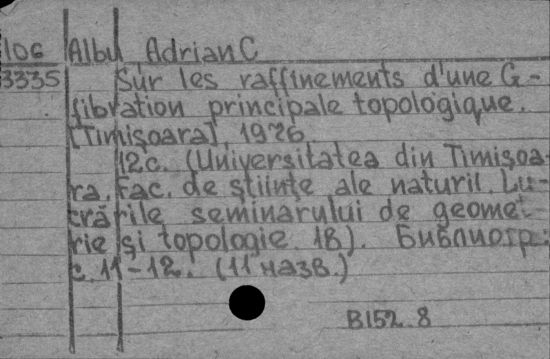 106 Albu Adrian C
3335 Sur les raffinements d'une G-
fibration principale topologique.
[Timişoara], 1976.
12c. (Universitatea din Timişoa-
ra. Fac. de ştiinţe ale naturii. Lu-
crările seminarului de geomet-
rie şi topologie. 18). Библиогр.:
с. 11-12. (11 назв.)
B152.8